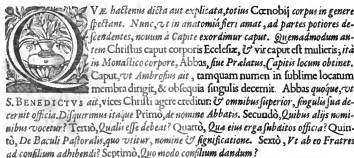 QVæ hactenus dicta aut explicata, totius Cœnobij corpus in genere
spectant. Nunc, vt in anatomia fieri amat, ad partes potiores de-
scendentes, nouum à Capite exordimur caput. Quemadmodum au-
rem Christus caput corporis Ecclesiæ, & vir caput est mulieris; ità
in Monastico corpore, Abbas, siue Prælatus, Capitis locum obtinet.
Caput, vt Ambrosius ait, tamquam numen in sublime locatum
membra dirigit, & obsequia singulis decernit. Abbas quoque, vt
S. BENEDICTVS ait, vices Christi agere creditur: & omnibus superior, singulis sua de-
cernit officia. Disquirimus itaque Primò, de nomine Abbatis. Secundò, Quibus alijs nomi-
nibus vocetur? Tertiò, Qualis esse debeat? Quartò, Quæ eius erga subditos officia? Quin-
tò, De Baculi Pastoralis, quo vtitur, nomine & significatione. Sextò, Vt ab eo Fratres
ad consilium adhibendi? Septimò, Quo modo consilium dandum?